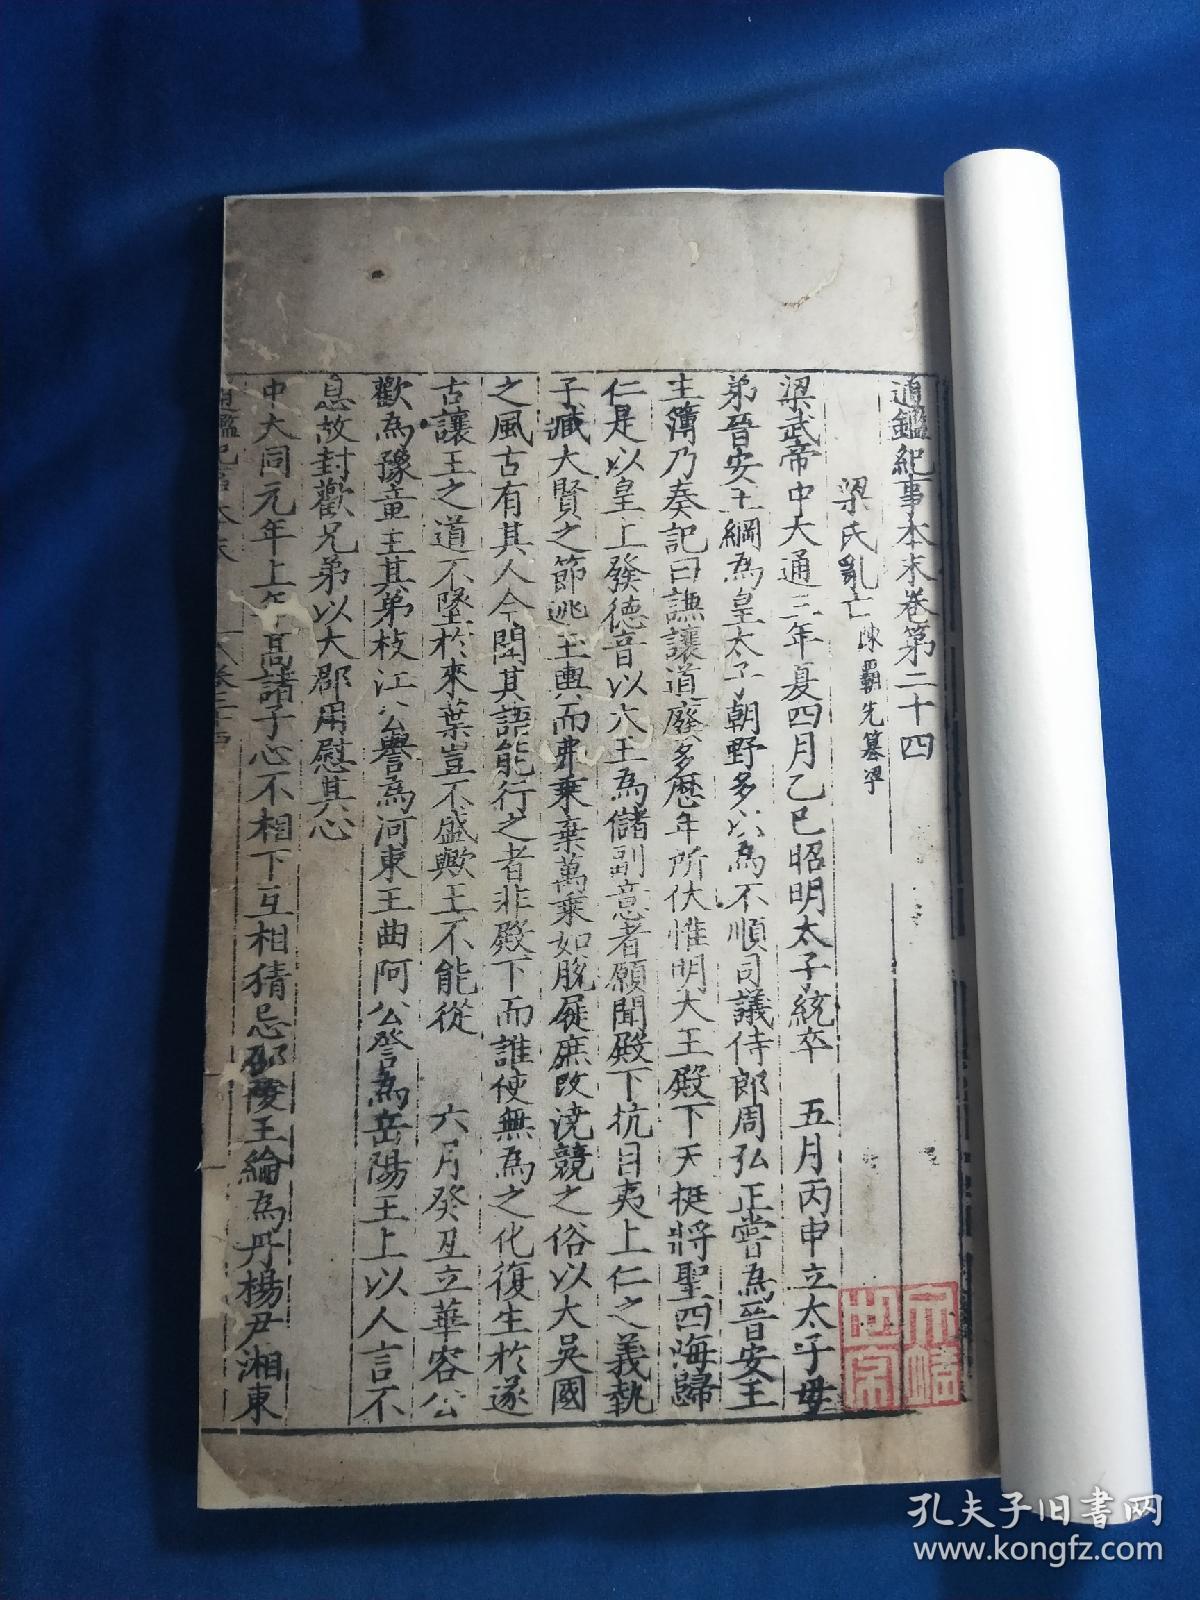 通鑑紀事本末卷第二十四
梁氏亂亡 陳霸先篡梁
梁武帝中大通三年夏四月乙巳昭明太子統卒 五月丙申立太子母
弟晉安王綱為皇太子朝野多以為不順司議侍郎周弘正嘗為晉安王
主簿乃奏記曰謙讓道廢多歷年所伏惟明大王殿下天挺將聖四海歸
仁是以皇上發德音以大王為儲副意者願聞殿下抗目夷上仁之義執
子臧大賢之節逃王輿而弗乘棄萬乘如脫屣庶改澆競之俗以大吳國
之風古有其人今聞其語能行之者非殿下而誰使無為之化復生於遂
古讓王之道不墜於來葉豈不盛歟王不能從 六月癸丑立華容公
歡為豫章王其弟枝江公譽為河東王曲阿公詧為岳陽王上以人言不
息故封歡兄弟以大郡用慰其心
中大同元年上年高諸子心不相下互相猜忌邵陵王綸為丹楊尹湘東
孔夫子旧书网
www.kongfz.com